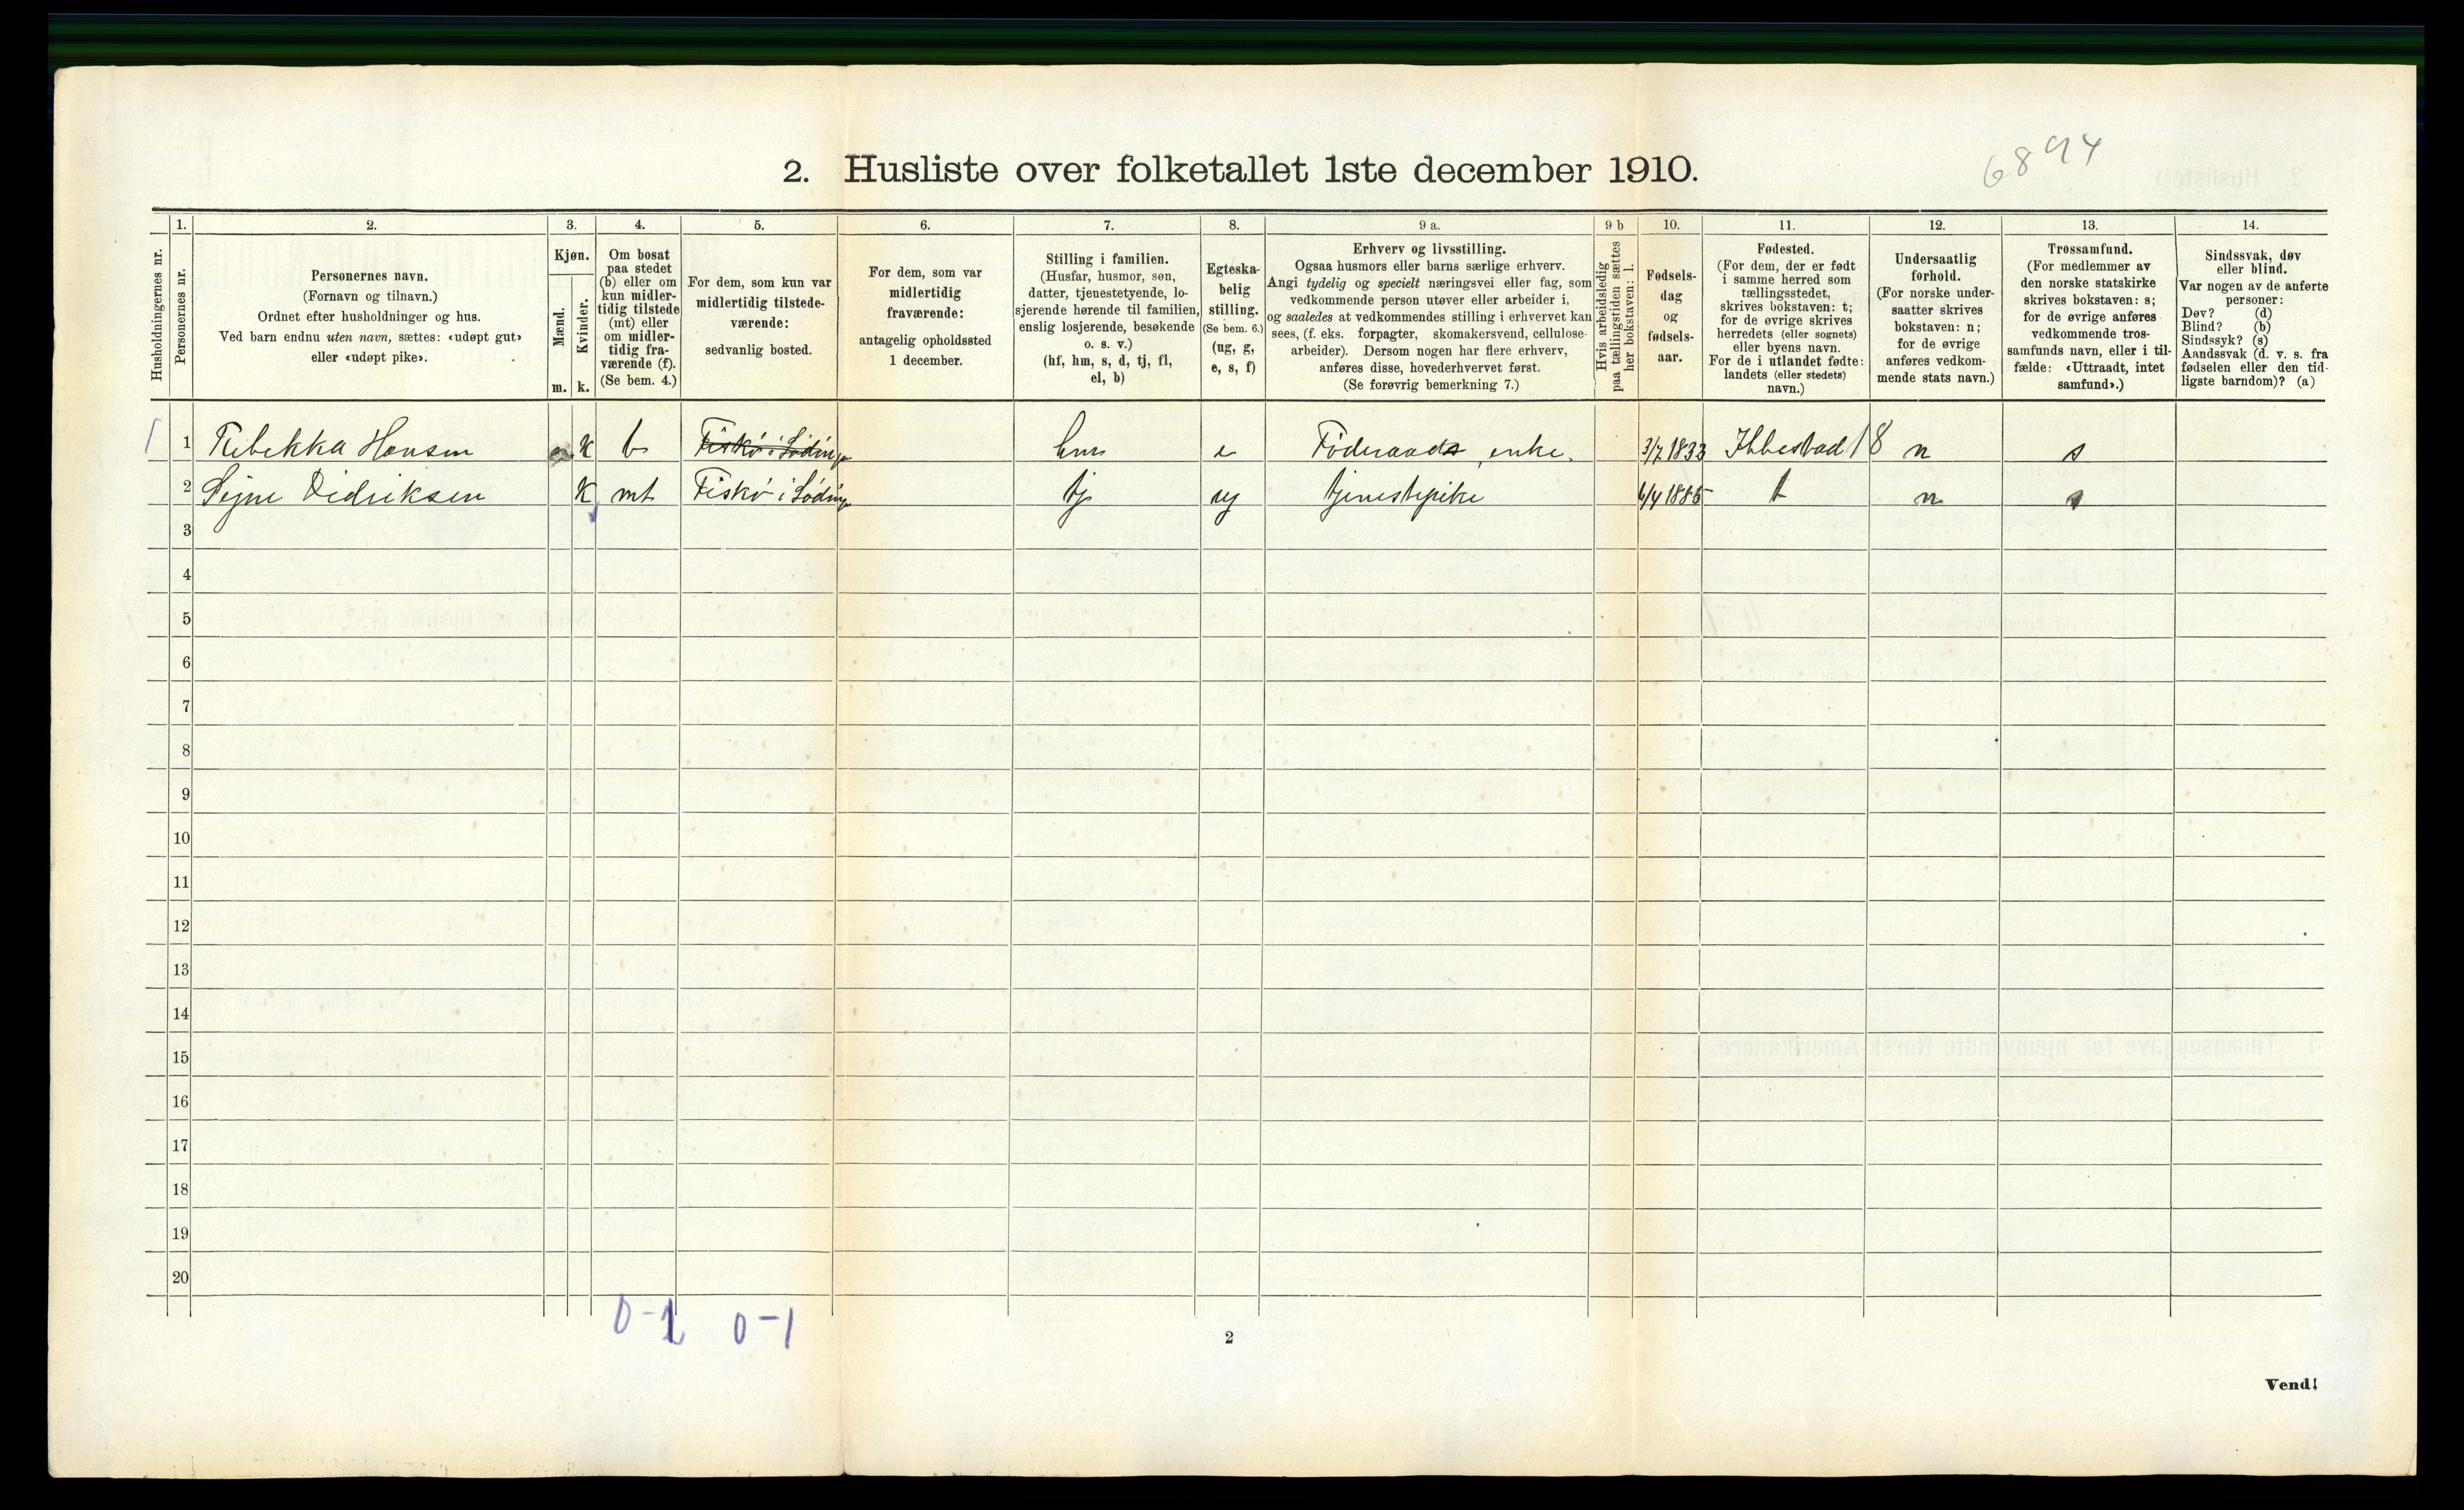 6894
2. Husliste over folketallet 1ste december 1910.
Husholdningernes nr.
1.
Personernes nr.
2.
Personernes navn.
(Fornavn og tilnavn.)
Ordnet efter husholdninger og hus.
Ved barn endnu uten navn, sættes: «udøpt gut»
eller «udøpt pike».
3.
Kjøn.
Mænd.
Kvinder.
m. k.
4.
Om bosat
paa stedet
(b) eller om
kun midler-
tidig tilstede
(mt) eller
om midler-
tidig fra-
værende (f).
(Se bem. 4.)
5.
For dem, som kun var
midlertidig tilstede-
værende:
sedvanlig bosted.
6.
For dem, som var
midlertidig
fraværende:
antagelig opholdssted
1 december.
7.
Stilling i familien.
(Husfar, husmor, søn,
datter, tjenestetyende, lo-
sjerende hørende til familien,
enslig losjerende, besøkende
o. s. v.)
(hf, hm, s, d, tj, fl,
el, b)
8.
Egteska-
belig
stilling.
(Se bem. 6.)
(ug, g,
e, s, f)
9 a.
Erhverv og livsstilling.
Ogsaa husmors eller barns særlige erhverv.
Angi tydelig og specielt næringsvei eller fag, som
vedkommende person utøver eller arbeider i,
og saaledes at vedkommendes stilling i erhvervet kan
sees, (f. eks. forpagter, skomakersvend, cellulose-
arbeider). Dersom nogen har flere erhverv,
anføres disse, hovederhvervet først.
(Se forøvrig bemerkning 7.)
9 b
Hvis arbeidsledig
paa tællingstiden sættes
her bokstaven: l.
10.
Fødsels-
dag
og
fødsels-
aar.
11.
Fødested.
(For dem, der er født
i samme herred som
tællingsstedet,
skrives bokstaven: t;
for de øvrige skrives
herredets (eller sognets)
eller byens navn.
For de i utlandet fødte:
landets (eller stedets)
navn.)
12.
Undersaatlig
forhold.
(For norske under-
saatter skrives
bokstaven: n;
for de øvrige
anføres vedkom-
mende stats navn.)
13.
Trossamfund.
(For medlemmer av
den norske statskirke
skrives bokstaven: s;
for de øvrige anføres
vedkommende tros-
samfunds navn, eller i til-
fælde: «Uttraadt, intet
samfund».)
14.
Sindssvak, døv
eller blind.
Var nogen av de anførte
personer:
Døv? (d)
Blind? (b)
Sindssyk? (s)
Aandssvak (d. v. s. fra
fødselen eller den tid-
ligste barndom)? (a)
1 Rebekka Hansen K b Fiskø i Lødingen hm e Føderaads enke. 3/7 1833 Ibbestad 18 n s
2 Signe Didriksen K mt Fiskø i Lødingen tj ug tjenestepike 6/4 1885 t n s
3
4
5
6
7
8
9
10
11
12
13
14
15
16
17
18
19
20
0-1 0-1
2
Vend!